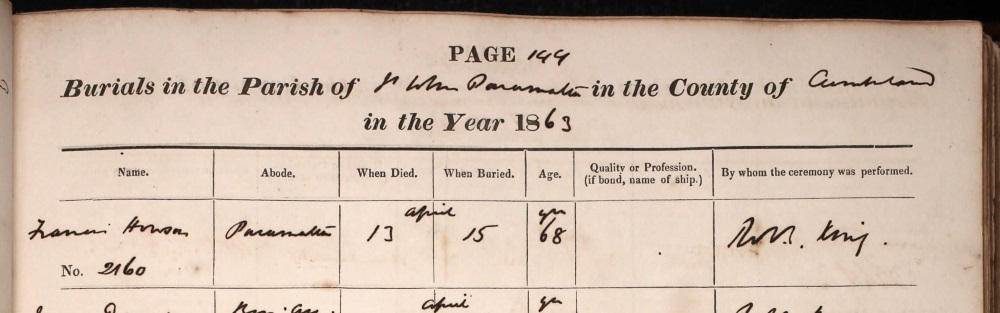 PAGE 144
Burials in the Parish of St John Paramatta in the County of Cumberland
in the Year 1863
Name. Abode. When Died. When Buried. Age. Quality or Profession. (if bond, name of ship.) By whom the ceremony was performed.
April yrs
Francis Howson Paramatta 13 15 68 King.
No. 2160
April yrs